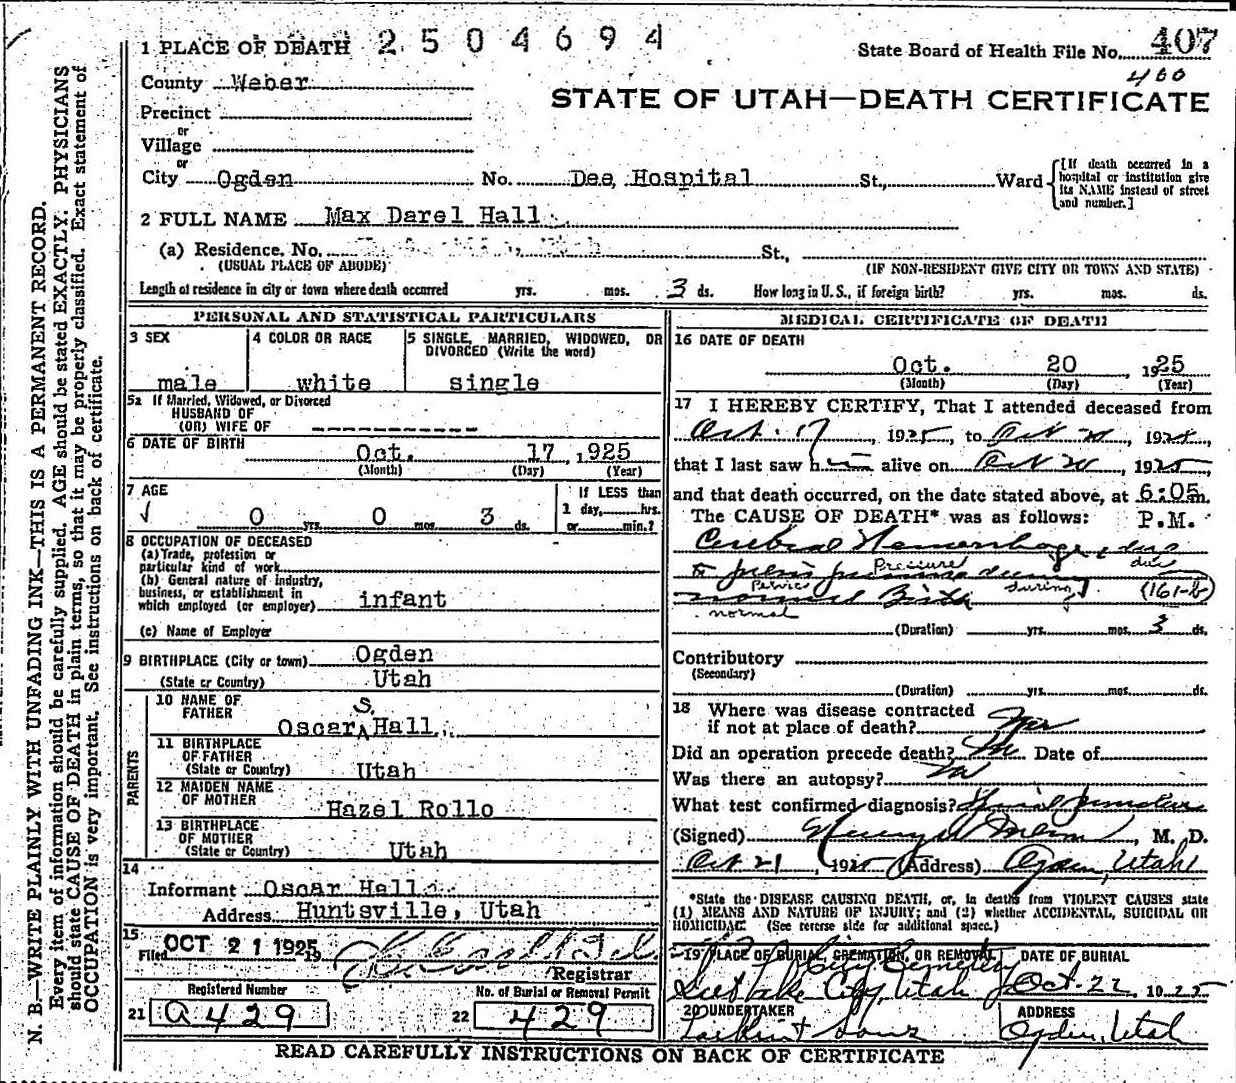 2504694
State Board of Health File No. 407
400
STATE OF UTAH—DEATH CERTIFICATE
1 PLACE OF DEATH
County Weber
Precinct
or
Village
or
City Ogden No. Dee Hospital St., Ward
[If death occurred in a hospital or institution give its NAME instead of street and number.]
2 FULL NAME Max Darel Hall
(a) Residence. No. St.,
(USUAL PLACE OF ABODE) (IF NON-RESIDENT GIVE CITY OR TOWN AND STATE)
Length of residence in city or town where death occurred yrs. mos. 3 ds. How long in U. S., if foreign birth? yrs. mos. ds.
PERSONAL AND STATISTICAL PARTICULARS
3 SEX
male
4 COLOR OR RACE
white
5 SINGLE, MARRIED, WIDOWED, OR DIVORCED (Write the word)
single
5a If Married, Widowed, or Divorced
HUSBAND OF
(OR) WIFE OF ----------
6 DATE OF BIRTH
Oct. 17, 1925
(Month) (Day) (Year)
7 AGE
0 yrs. 0 mos. 3 ds.
If LESS than
1 day, hrs.
or min.?
8 OCCUPATION OF DECEASED
(a) Trade, profession or
particular kind of work
(b) General nature of industry,
business, or establishment in
which employed (or employer) infant
(c) Name of Employer
9 BIRTHPLACE (City or town) Ogden
(State or Country) Utah
PARENTS
10 NAME OF
FATHER
Oscar S. Hall
11 BIRTHPLACE
OF FATHER
(State or Country) Utah
12 MAIDEN NAME
OF MOTHER
Hazel Rollo
13 BIRTHPLACE
OF MOTHER
(State or Country) Utah
14
Informant Oscar Hall
Address Huntsville, Utah
15
Filed OCT 21 1925 19
Registrar
Registered Number
21 a429
No. of Burial or Removal Permit
22 429
MEDICAL CERTIFICATE OF DEATH
16 DATE OF DEATH
Oct. 20 1925
(Month) (Day) (Year)
17 I HEREBY CERTIFY, That I attended deceased from
Oct. 17, 1925, to Oct 20, 1925,
that I last saw him alive on Oct 20, 1925,
and that death occurred, on the date stated above, at 6:05 m.
P.M.
The CAUSE OF DEATH* was as follows:
Cerebral Hemorrhage, due
due
to pelvic pressure during
Pressure
Pelvic during (161-b)
normal Birth
normal
(Duration) yrs. mos. 3 ds.
Contributory
(Secondary)
(Duration) yrs. mos. ds.
18 Where was disease contracted
if not at place of death?
Did an operation precede death? No Date of
Was there an autopsy? No
What test confirmed diagnosis? Spinal puncture
(Signed) M. D.
Oct 21, 1925 (Address) Ogden, Utah
*State the DISEASE CAUSING DEATH, or, in deaths from VIOLENT CAUSES state
(1) MEANS AND NATURE OF INJURY; and (2) whether ACCIDENTAL, SUICIDAL OR
HOMICIDAL (See reverse side for additional space.)
19 PLACE OF BURIAL, CREMATION, OR REMOVAL
City Cemetery
Salt Lake City, Utah
DATE OF BURIAL
Oct. 22, 1925
20 UNDERTAKER
Larkin & Sons
ADDRESS
Ogden, Utah
READ CAREFULLY INSTRUCTIONS ON BACK OF CERTIFICATE
N. B.—WRITE PLAINLY WITH UNFADING INK—THIS IS A PERMANENT RECORD.
Every item of information should be carefully supplied. AGE should be stated EXACTLY. PHYSICIANS
should state CAUSE OF DEATH in plain terms, so that it may be properly classified. Exact statement of
OCCUPATION is very important. See instructions on back of certificate.